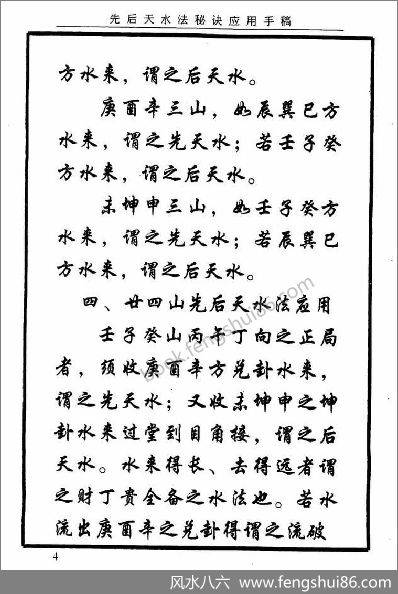 先后天水法秘诀应用手稿
方水来，谓之后天水。
庚酉辛三山，如辰巽巳方
水来，谓之先天水；若壬子癸
方水来，谓之后天水。
未坤申三山，如壬子癸方
水来，谓之先天水；若辰巽巳
方水来，谓之后天水。
四、廿四山先后天水法应用
壬子癸山丙午丁向之正局
者，须收庚酉辛方兑卦水来，
谓之先天水；又收未坤申之坤
卦水来过堂到目角接，谓之后
天水。水来得长、去得远者谓
之财丁贵全备之水法也。若水
流出庚酉辛之兑卦得谓之流破
4
book.fengshui86.com
风水八六 - www.fengshui86.com